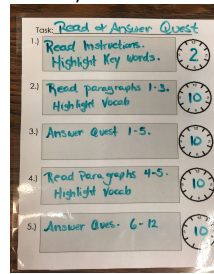 Task: Read & Answer Quest
1.) Read Instructions.
Highlight Key words.
2
2.) Read paragraphs 1-3.
Highlight Vocab
10
3.) Answer Quest 1-5.
10
4.) Read Paragraphs 4-5.
Highlight Vocab
10
5.) Answer Ques. 6-12
10